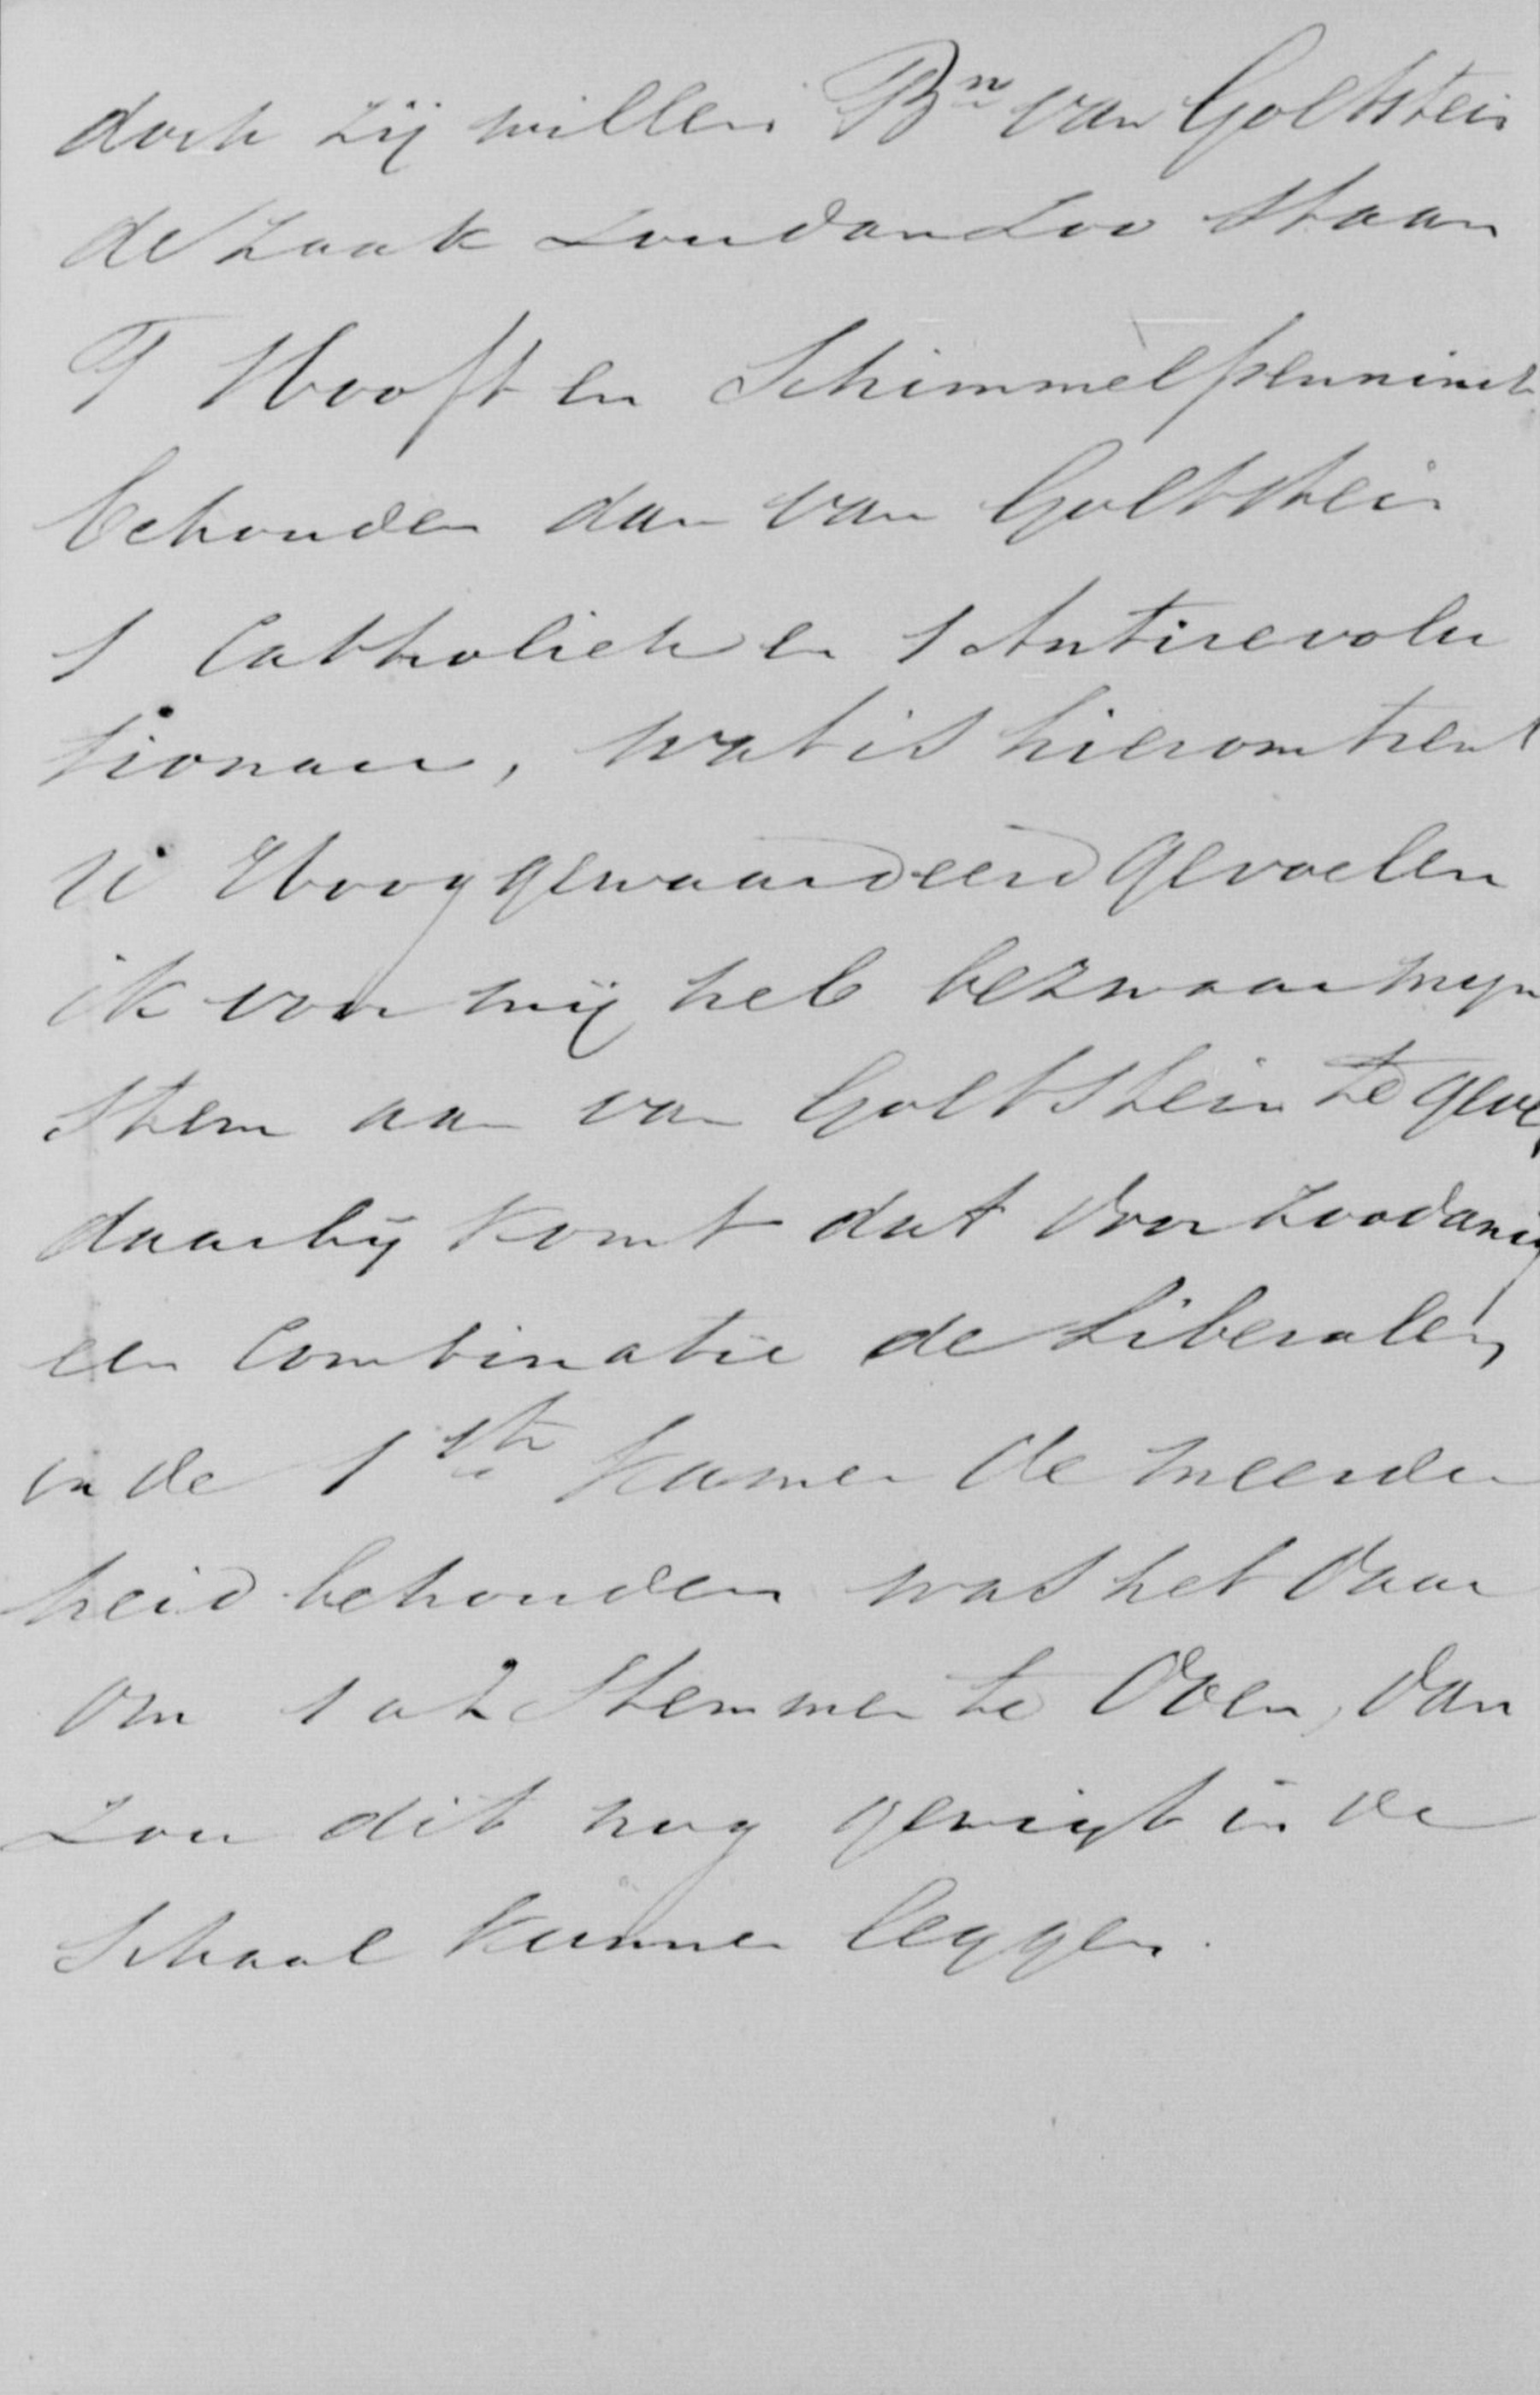 doch zij willen Bn van Goltstein
de zaak zou dan zoo staan
T Hooft en Schimmelpenninck
behouden dan van Goltstein
1 Catholiek en 1 Antirevolu
tionair, wat is hieromtrent
U Hooggewaardeerd gevoelen
ik voor mij heb bezwaar mijn
stem aan van Goltstein te geve
daarbij komt dat door zoodanig
een Combinatie de Liberalen
in de 1ste Kamer de meerder
heid behouden was het daar
om 1 a 2 Stemmen te doen, dan
zou dit nog gewigt in de
Schaal kunnen leggen.